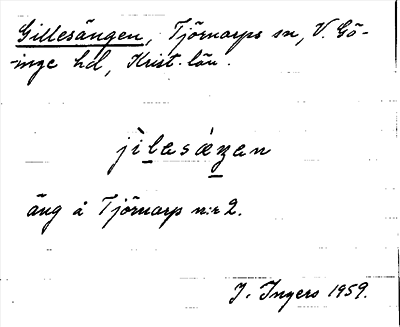 Gillesängen, Tjörnarps sn, V. Gö-
-inge hd, Krist. län.
jìlesáŋen
äng å Tjörnarp n:r 2.
I. Ingers 1959.